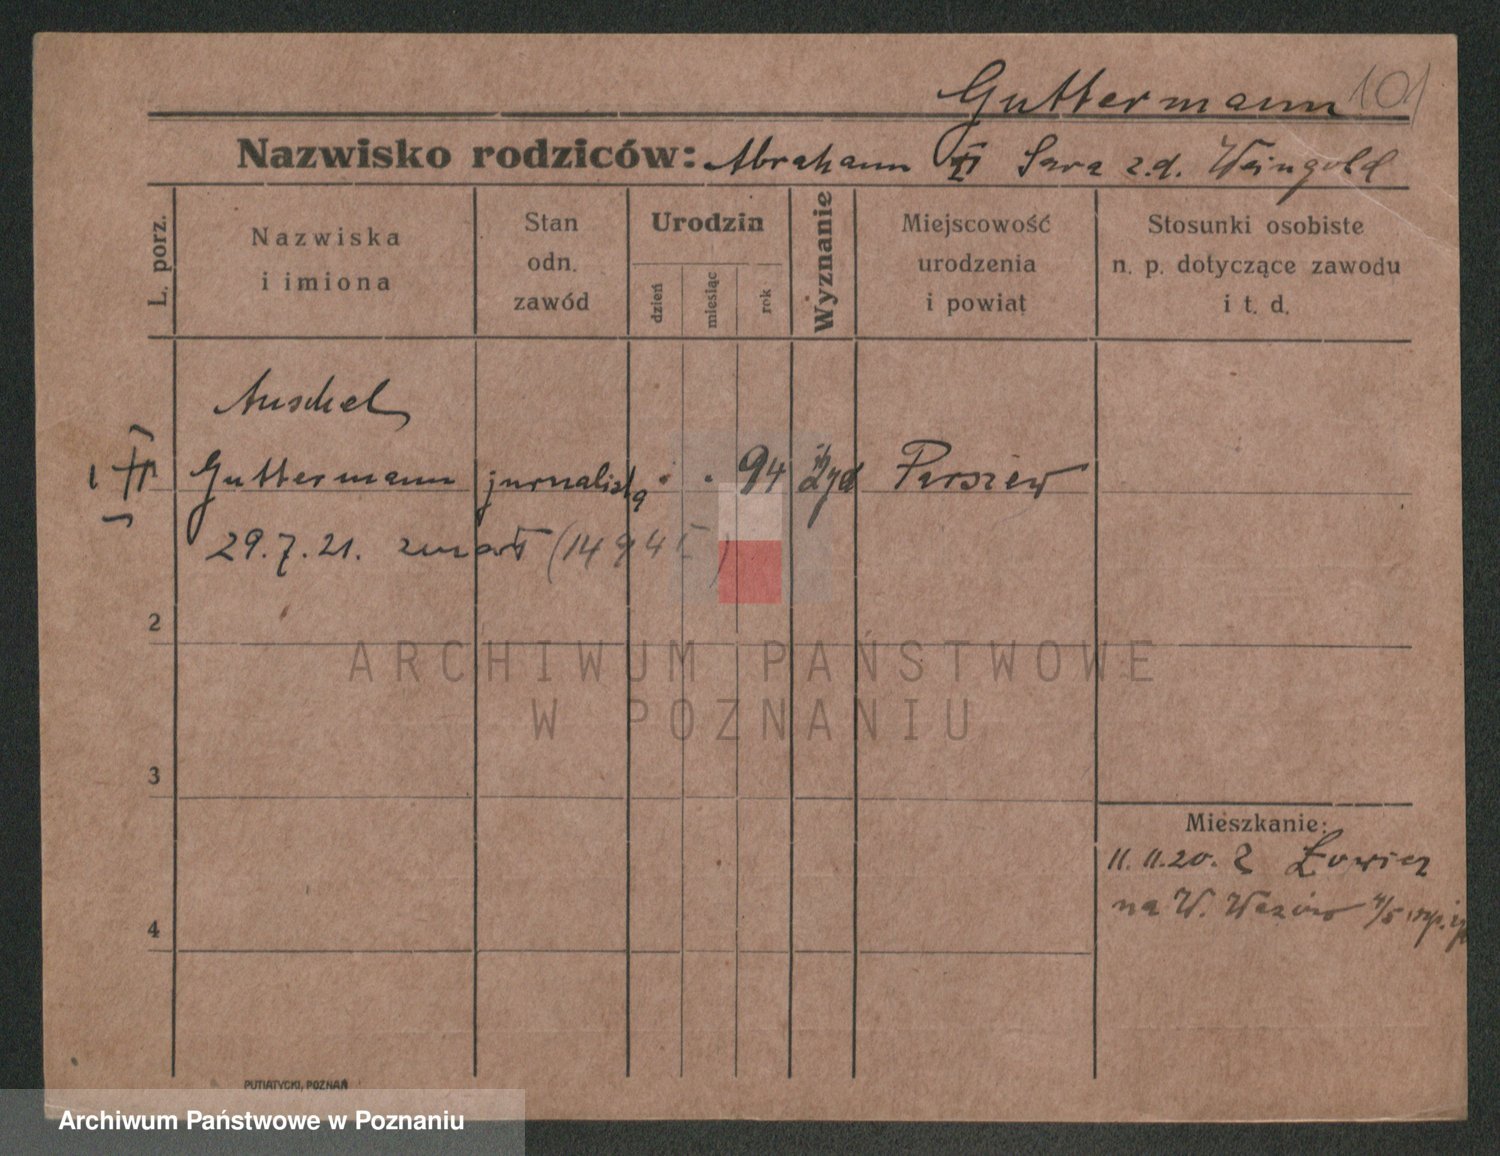 Guttermann 101
Nazwisko rodziców: Abraham Sara z.d. Weingold
L. porz.
Nazwiska
i imiona
Stan
odn.
zawód
Urodzin
dzień
miesiąc
rok
Wyznanie
Miejscowość
urodzenia
i powiat
Stosunki osobiste
n. p. dotyczące zawodu
i t. d.
Anschel
1 Guttermann jurnalista . . 94 Żyd Parsiew
29.7.21. zmarł (14 9
2
ARCHIWUM PAŃSTWOWE
W POZNANIU
3
Mieszkanie:
11.11.20. z Łowicz
na W.
4
PUTIATYCKI, POZNAŃ
Archiwum Państwowe w Poznaniu